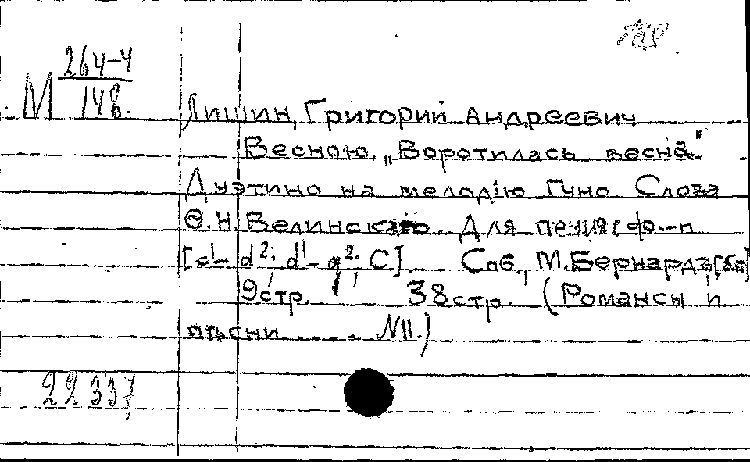 М 264-4/148.
Лишин, Григорий Андреевич
Весною. „Воротилась весна"
Дуэтино на мелодію Гуно. Слова
Ѳ. Н. Белинскаго. Для пения с ф.-п.
[c¹- d²; d¹- g². C.] Спб., М. Бернардъ, [бг]
9 стр. 38 стр. (Романсы и
пѣсни ..... №11.)
22337